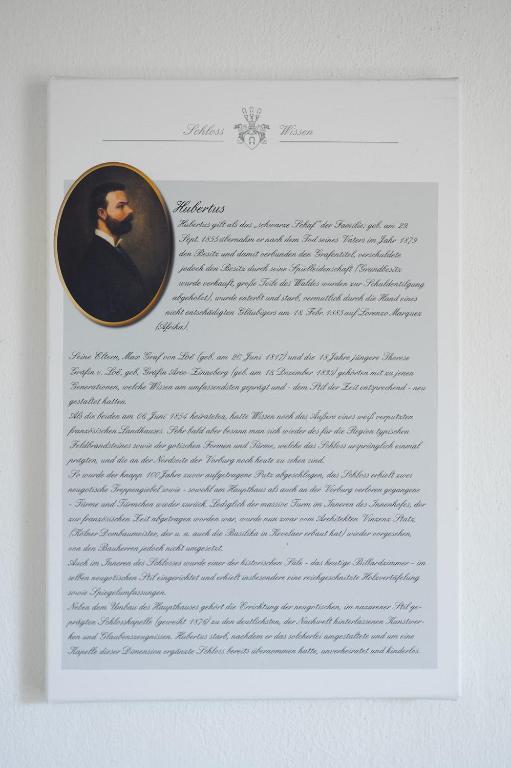 Schloss Wissen
Hubertus
Hubertus gilt als das „schwarze Schaf" der Familie: geb. am 29.
Sept. 1855 übernahm er nach dem Tod seines Vaters im Jahr 1879
den Besitz und damit verbunden den Grafentitel, verschuldete
jedoch den Besitz durch seine Spielleidenschaft (Grundbesitz
wurde verkauft, große Teile des Waldes wurden zur Schuldentilgung
abgeholzt), wurde enterbt und starb, vermutlich durch die Hand eines
nicht entschädigten Gläubigers am 18. Febr. 1885 auf Lorenzo Marquez
(Afrika).
Seine Eltern, Max Graf von Loë (geb. am 26. Juni 1817) und die 18 Jahre jüngere Therese
Gräfin v. Loë, geb. Gräfin Arco-Zinneberg (geb. am 18. Dezember 1835) gehörten mit zu jenen
Generationen, welche Wissen am umfassendsten geprägt und - dem Stil der Zeit entsprechend - neu
gestaltet hatten.
Als die beiden am 06. Juni 1854 heirateten, hatte Wissen noch das Äußere eines weiß verputzten
französischen Landhauses. Sehr bald aber besann man sich wieder des für die Region typischen
Feldbrandsteines sowie der gotischen Formen und Türme, welche das Schloss ursprünglich einmal
prägten, und die an der Nordseite der Vorburg noch heute zu sehen sind.
So wurde der knapp 100 Jahre zuvor aufgetragene Putz abgeschlagen, das Schloss erhielt zwei
neugotische Treppengiebel sowie - sowohl am Haupthaus als auch an der Vorburg verloren gegangene
- Türme und Türmchen wieder zurück. Lediglich der massive Turm im Inneren des Innenhofes, der
zur französischen Zeit abgetragen worden war, wurde nun zwar vom Architekten Vinzenz Statz,
(Kölner Dombaumeister, der u. a. auch die Basilika in Kevelaer erbaut hat) wieder vorgesehen,
von den Bauherren jedoch nicht umgesetzt.
Auch im Inneren des Schlosses wurde einer der historischen Säle - das heutige Billardzimmer - im
selben neugotischen Stil eingerichtet und erhielt insbesondere eine reichgeschnitzte Holzvertäfelung
sowie Spiegelumfassungen.
Neben dem Umbau des Haupthauses gehört die Errichtung der neugotischen, im nazarener Stil ge-
prägten Schlosskapelle (geweiht 1876) zu den deutlichsten, der Nachwelt hinterlassenen Kunstwer-
ken und Glaubenszeugnissen. Hubertus starb, nachdem er das solcherlei umgestaltete und um eine
Kapelle dieser Dimension ergänzte Schloss bereits übernommen hatte, unverheiratet und kinderlos.